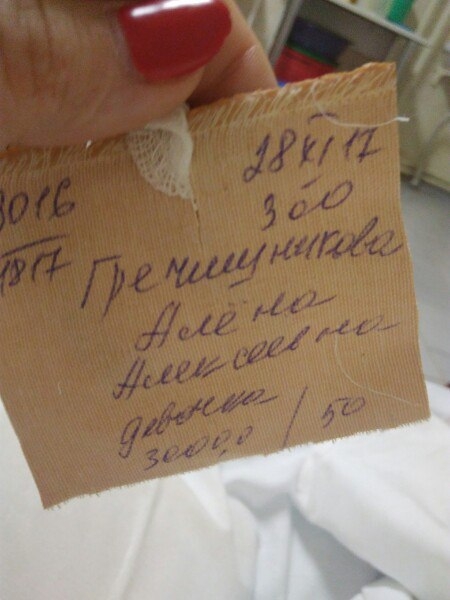 3016 28 XI 17
1817 3 00
Гречишникова
Алёна
Алексеевна
девочка
3000,0 / 50